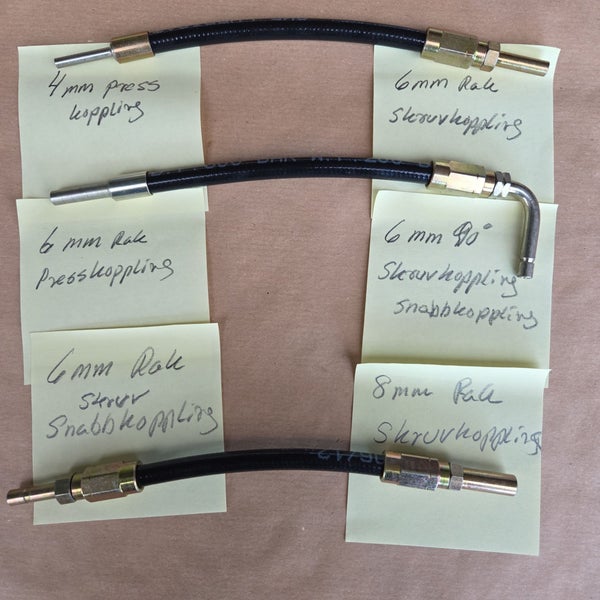 4mm press
koppling
6mm Rak
Skruvkoppling
6 mm Rak
Presskoppling
6 mm 90°
Skruvkoppling
snabbkoppling
6mm Rak
Skruv
Snabbkoppling
8mm Rak
Skruvkoppling